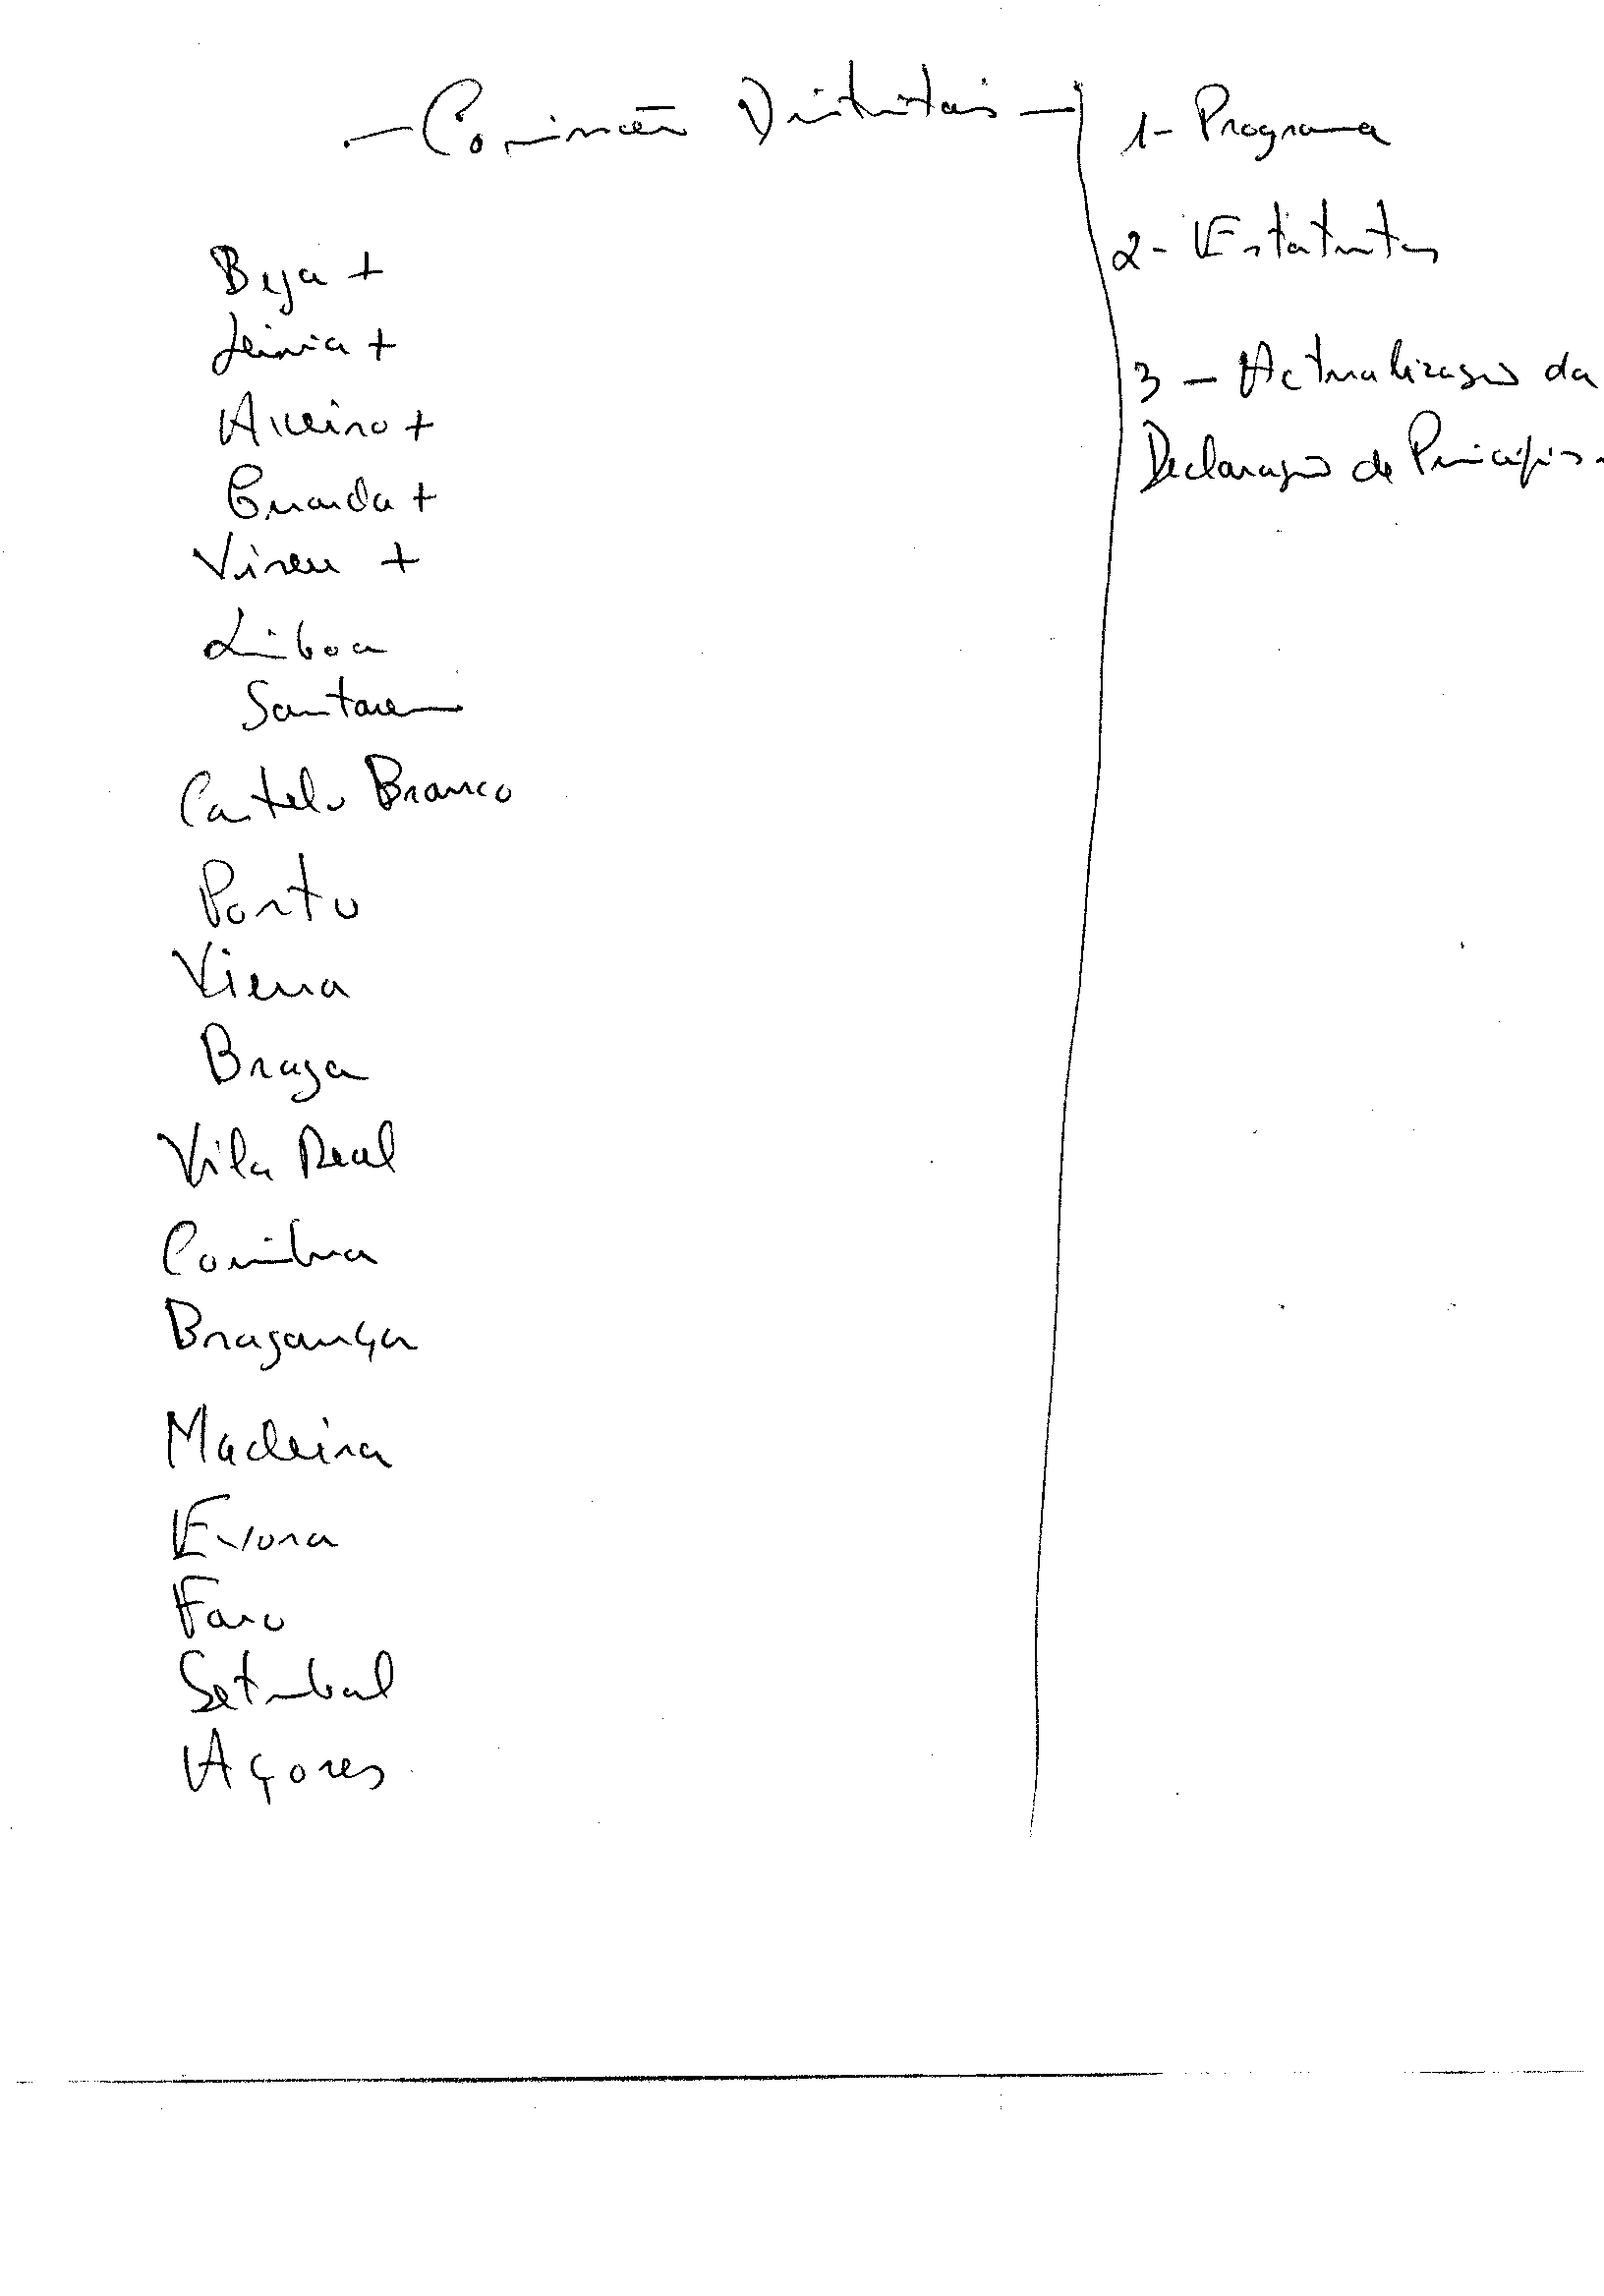 - Comissão Distritais -
Beja +
Leiria +
Aveiro +
Guarda +
Viseu +
Lisboa
Santarem
Castelo Branco
Porto
Viena
Braga
Vila Real
Coimbra
Bragança
Madeira
Evora
Faro
Setubal
Açores
1- Programa
2- Estatutos
3 - Actualização da
Declaração de Principios.